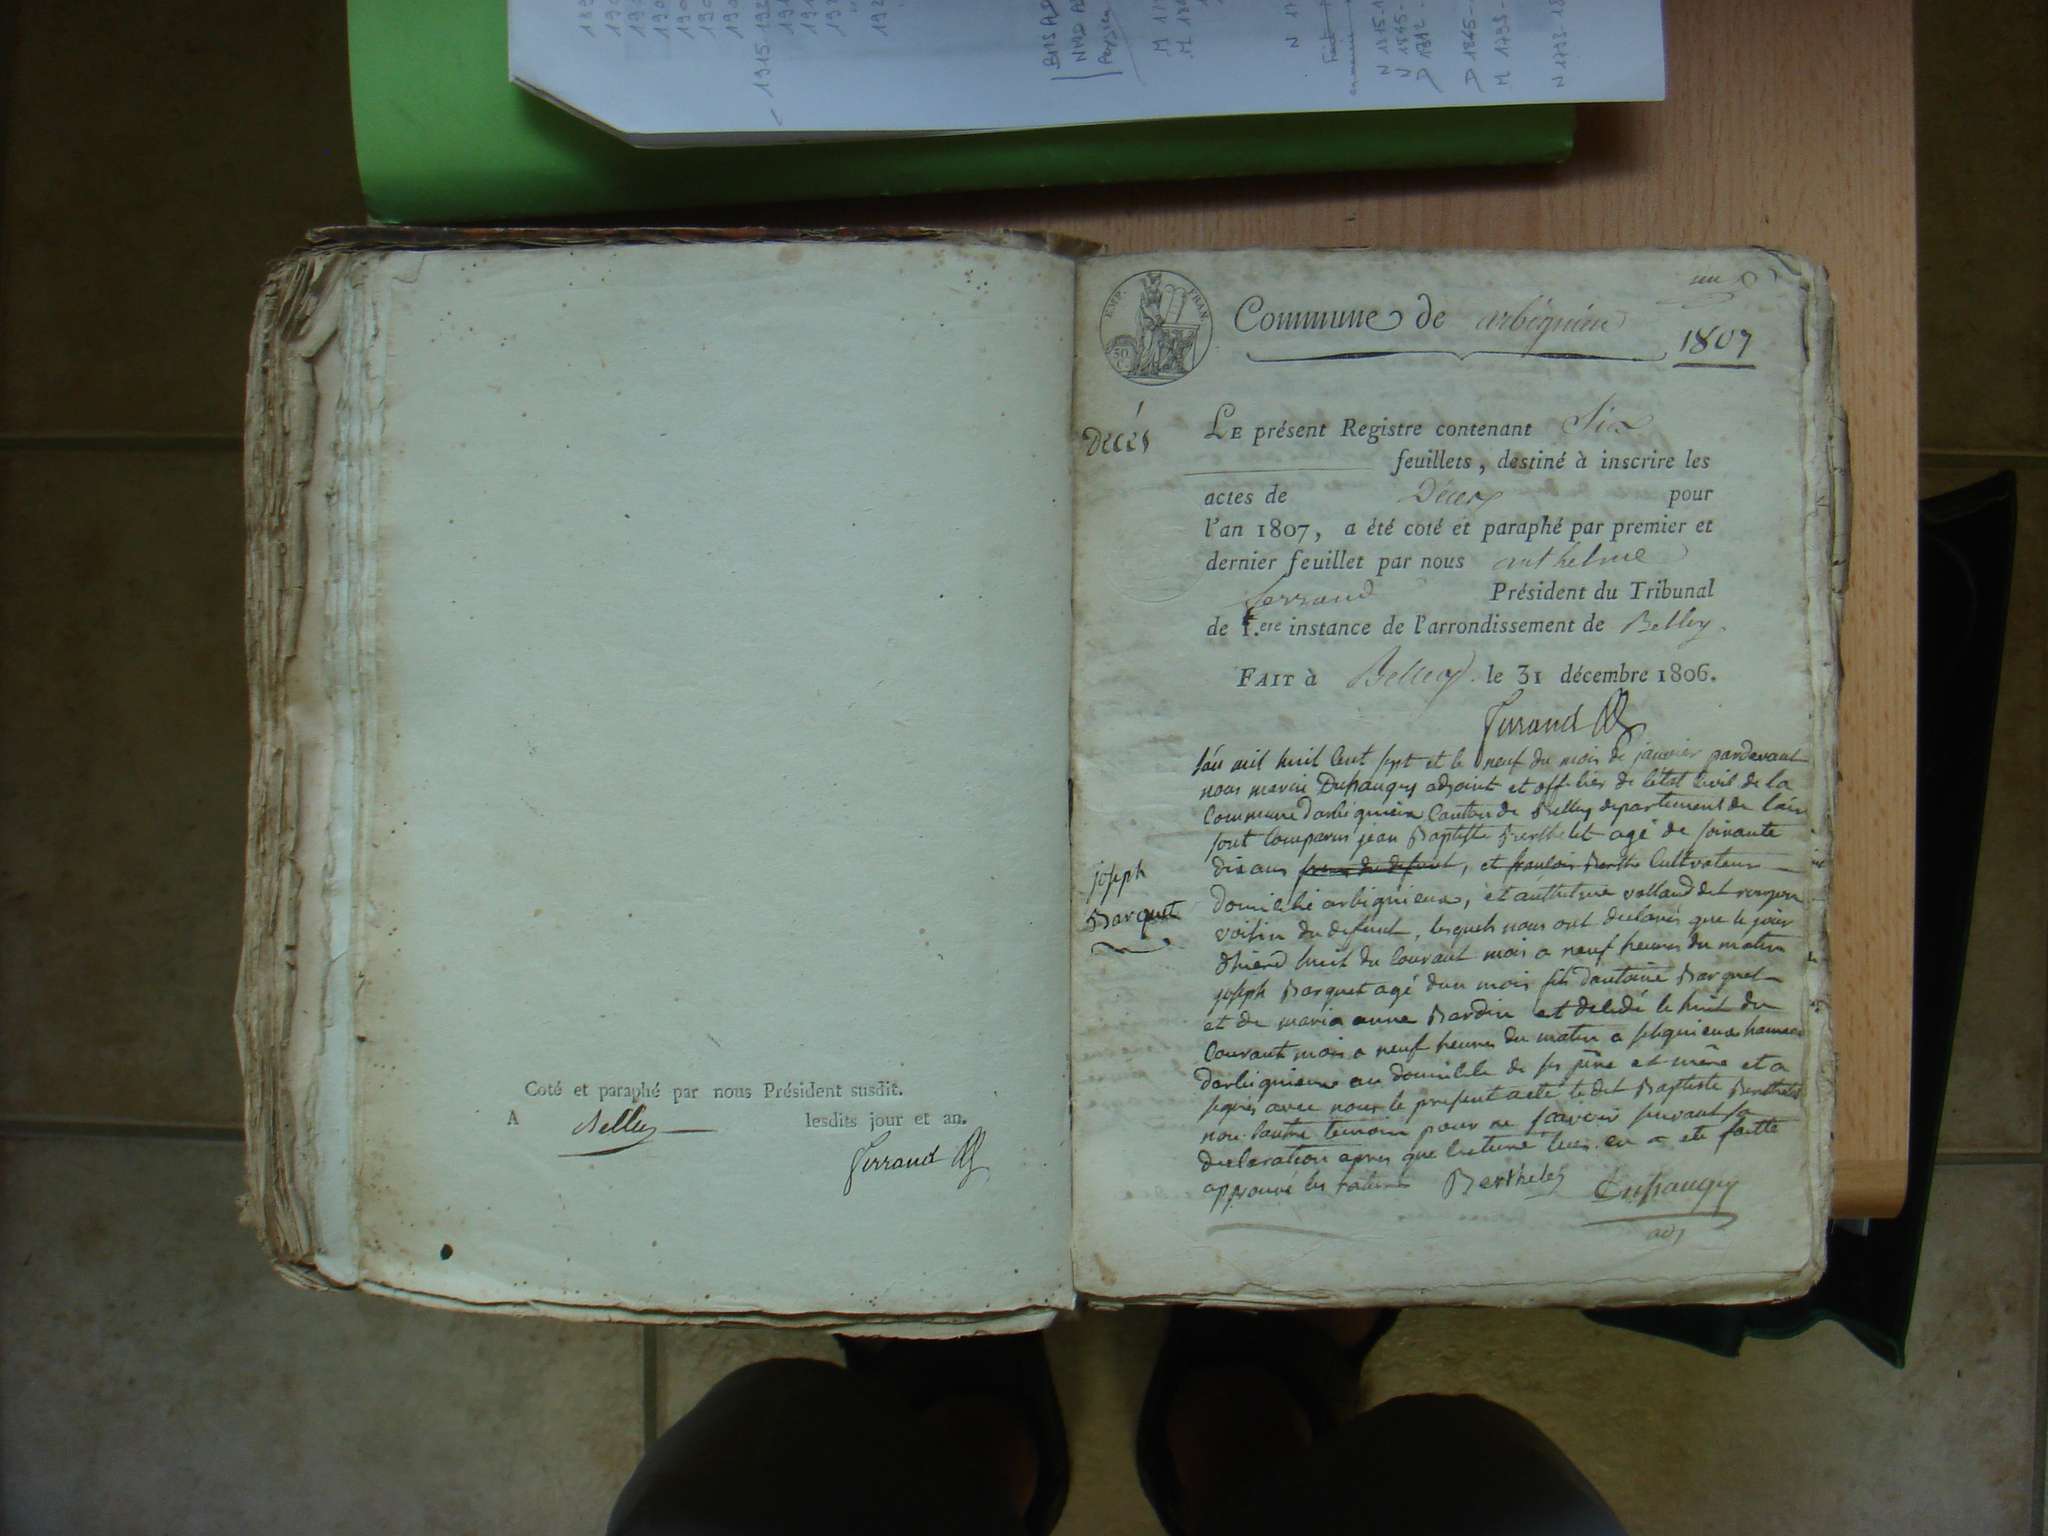 1915-192
BMS AD
NMD AD
N 1815-1
N 1845-
D 1812-
D 1845-
M 1798-
N 1798-18
Coté et paraphé par nous Président susdit.
A Belley lesdits jour et an.
Ferrand
EMP. FRAN.
50 C.
un
Commune de arbignieu
1807
Décés
LE présent Registre contenant Six
feuillets, destiné à inscrire les
actes de Décès pour
l'an 1807, a été coté et paraphé par premier et
dernier feuillet par nous anthelme
ferrand Président du Tribunal
de 1.ere instance de l'arrondissement de Belley.
FAIT à Belley. le 31 décembre 1806.
Ferrand
joseph
Barquet
L'an mil huit cent sept et le neuf du mois de janvier pardevant
nous marin Dupaugey adjoint et officier de l'état civil de la
Commune d'arbignieu Canton de Belley departement de l'ain
sont comparus jean Baptiste Berthelet agé de soixante
dix ans frere du defunt, et francois Cultivateur
domicilié arbignieux, et anthelme
voisin du defunt, lesquels nous ont declarés que le jour
d'hierd huit du courant mois a neuf heures du matin
joseph Barquet agé d'un mois fils d'antoine Barquet
et de maria anne Bardin et decedé le huit du
Courant mois a neuf heures du matin a hameau
d'arbignieux au domicile de ses père et mère et a
signés avec nous le present acte le dit Baptiste Berthelet
non l'autre temoin pour ne savoir suivant sa
declaration apres que lecture leur en a eté faitte
approuvé les Berthelet Dupaugey
adj